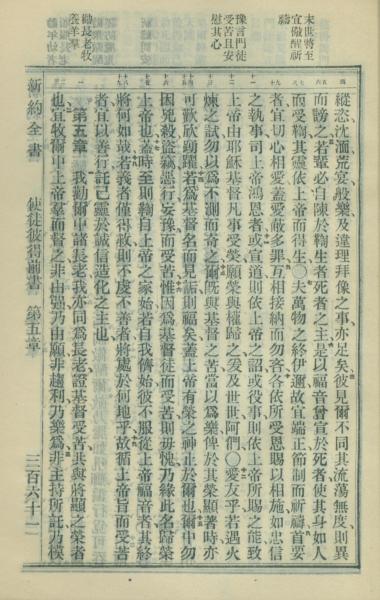 末世將至
宜儆醒祈
禱
豫言門徒
受苦且安
慰其心
勸長老牧
養羊羣
縱恣沈湎荒宴般樂及違理拜像之事亦足矣彼見爾不同其流蕩無度則異
而謗之若輩必自陳於鞫生者死者之主是以福音曾宣於死者使其身如人
而受鞫其靈依上帝而得生〇夫萬物之終伊邇故宜端正節制而祈禱首要
者宜切心相愛蓋愛蔽多罪互相接納而勿吝各依所受恩賜以相施如忠信
之執事司上帝鴻恩者或宣道則依上帝之詔或役事則依上帝所賜之能致
上帝由耶穌基督凡事受榮願榮與權歸之爰及世世阿們〇愛友乎若遇火
煉之試勿以爲不測而奇之爾旣與基督之苦當以爲樂俾於其榮顯著時亦
可歡欣踴躍若爲基督名而見詬則福矣蓋上帝有榮之神止於爾也爾中勿
因兇殺盜竊慝行妄豫而受苦惟因爲基督徒而受苦則毋愧乃緣此名歸榮
上帝也蓋時至則鞫自上帝之家始若自我儕始彼不服從上帝福音者其終
將何如哉若義者僅得救則不虔不善者將處於何地乎故循上帝旨而受苦
者宜以善行託己靈於誠信造化之主也
第五章 我勸爾中諸長老我亦同爲長老證基督受苦共與將顯之榮者
也宜牧爾中上帝羣而督之非由強乃由願非趨利乃樂爲非主持所託乃模
新約全書 使徒彼得前書 第五章 三百六十一